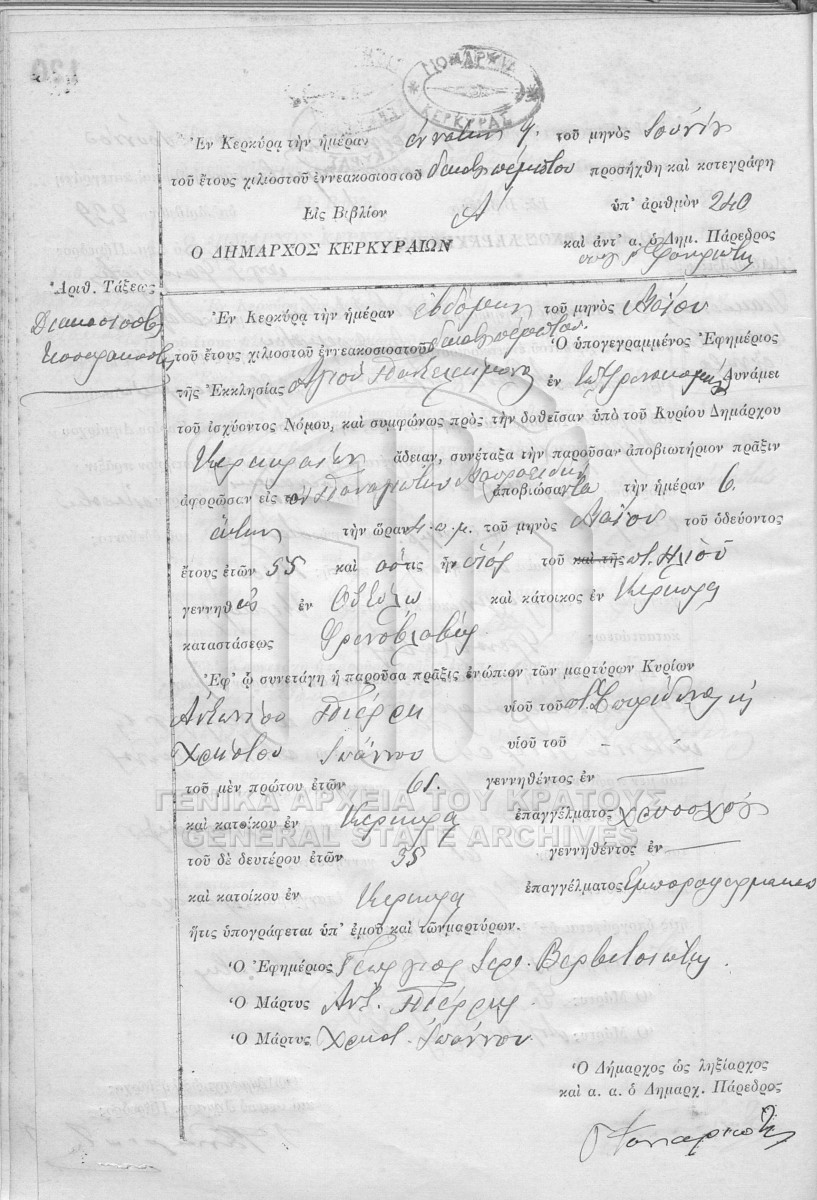 ΝΟΜΑΡΧΙΑ
ΚΕΡΚΥΡΑΣ
Ἐν Κερκύρᾳ τὴν ἡμέραν ἐννάτην 9. τοῦ μηνὸς Ἰουνίου
τοῦ ἔτους χιλιοστοῦ ἐννεακοσιοστοῦ δεκάτου πέμπτου προσήχθη καὶ κατεγράφη
Εἰς Βιβλίον Α ὑπ' ἀριθμὸν 240
Ο ΔΗΜΑΡΧΟΣ ΚΕΡΚΥΡΑΙΩΝ καὶ ἀντ' α. ὁ Δημ. Πάρεδρος
Ἀριθ. Τάξεως
Διακοσιοστὸς
Τεσσαρακοστὸς
Ἐν Κερκύρᾳ τὴν ἡμέραν ἑβδόμην τοῦ μηνὸς Μαΐου
τοῦ ἔτους χιλιοστοῦ ἐννεακοσιοστοῦ δεκάτου πέμπτου Ὁ ὑπογεγραμμένος Ἐφημέριος
τῆς Ἐκκλησίας Ἁγίου Παντελεήμονος ἐν τῷ Φρενοκομείῳ Δυνάμει
τοῦ ἰσχύοντος Νόμου, καὶ συμφώνως πρὸς τὴν δοθεῖσαν ὑπὸ τοῦ Κυρίου Δημάρχου
Κερκυραίων ἄδειαν, συνέταξα τὴν παροῦσαν ἀποβιωτήριον πρᾶξιν
ἀφορῶσαν εἰς τὸν Παναγιώτην ἀποβιώσαντα τὴν ἡμέραν 6.
ἕκτην τὴν ὥραν 4. π. μ. τοῦ μηνὸς Μαΐου τοῦ ὁδεύοντος
ἔτους ἐτῶν 55 καὶ ὅστις ἦν υἱὸς τοῦ καὶ τῆς π. Ἠλιοῦ
γεννηθεὶς ἐν Οἰτύλῳ καὶ κάτοικος ἐν Κερκύρᾳ
καταστάσεως Φρενοβλαβὴς
Ἐφ' ᾧ συνετάγη ἡ παροῦσα πρᾶξις ἐνώπιον τῶν μαρτύρων Κυρίων
Ἀντωνίου Πιέρρη υἱοῦ τοῦ π. Σπυρίδωνος
Χρήστου Ἰωάννου υἱοῦ τοῦ - -
τοῦ μὲν πρώτου ἐτῶν 65. γεννηθέντος ἐν —
ΓΕΝΙΚΑ ΑΡΧΕΙΑ ΤΟΥ ΚΡΑΤΟΥΣ
καὶ κατοίκου ἐν Κερκύρᾳ ἐπαγγέλματος χρυσοχόος
GENERAL STATE ARCHIVES
τοῦ δὲ δευτέρου ἐτῶν 35 γεννηθέντος ἐν —
καὶ κατοίκου ἐν Κερκύρᾳ ἐπαγγέλματος
ἥτις ὑπογράφεται ὑπ' ἐμοῦ καὶ τῶν μαρτύρων.
Ὁ Ἐφημέριος Γεώργιος Ἱερ. Βερβιτσιώτης.
Ὁ Μάρτυς Ἀντ. Πιέρρης
Ὁ Μάρτυς Χρῆστ. Ἰωάννου
Ὁ Δήμαρχος ὡς ληξίαρχος
καὶ α. α. ὁ Δημαρχ. Πάρεδρος